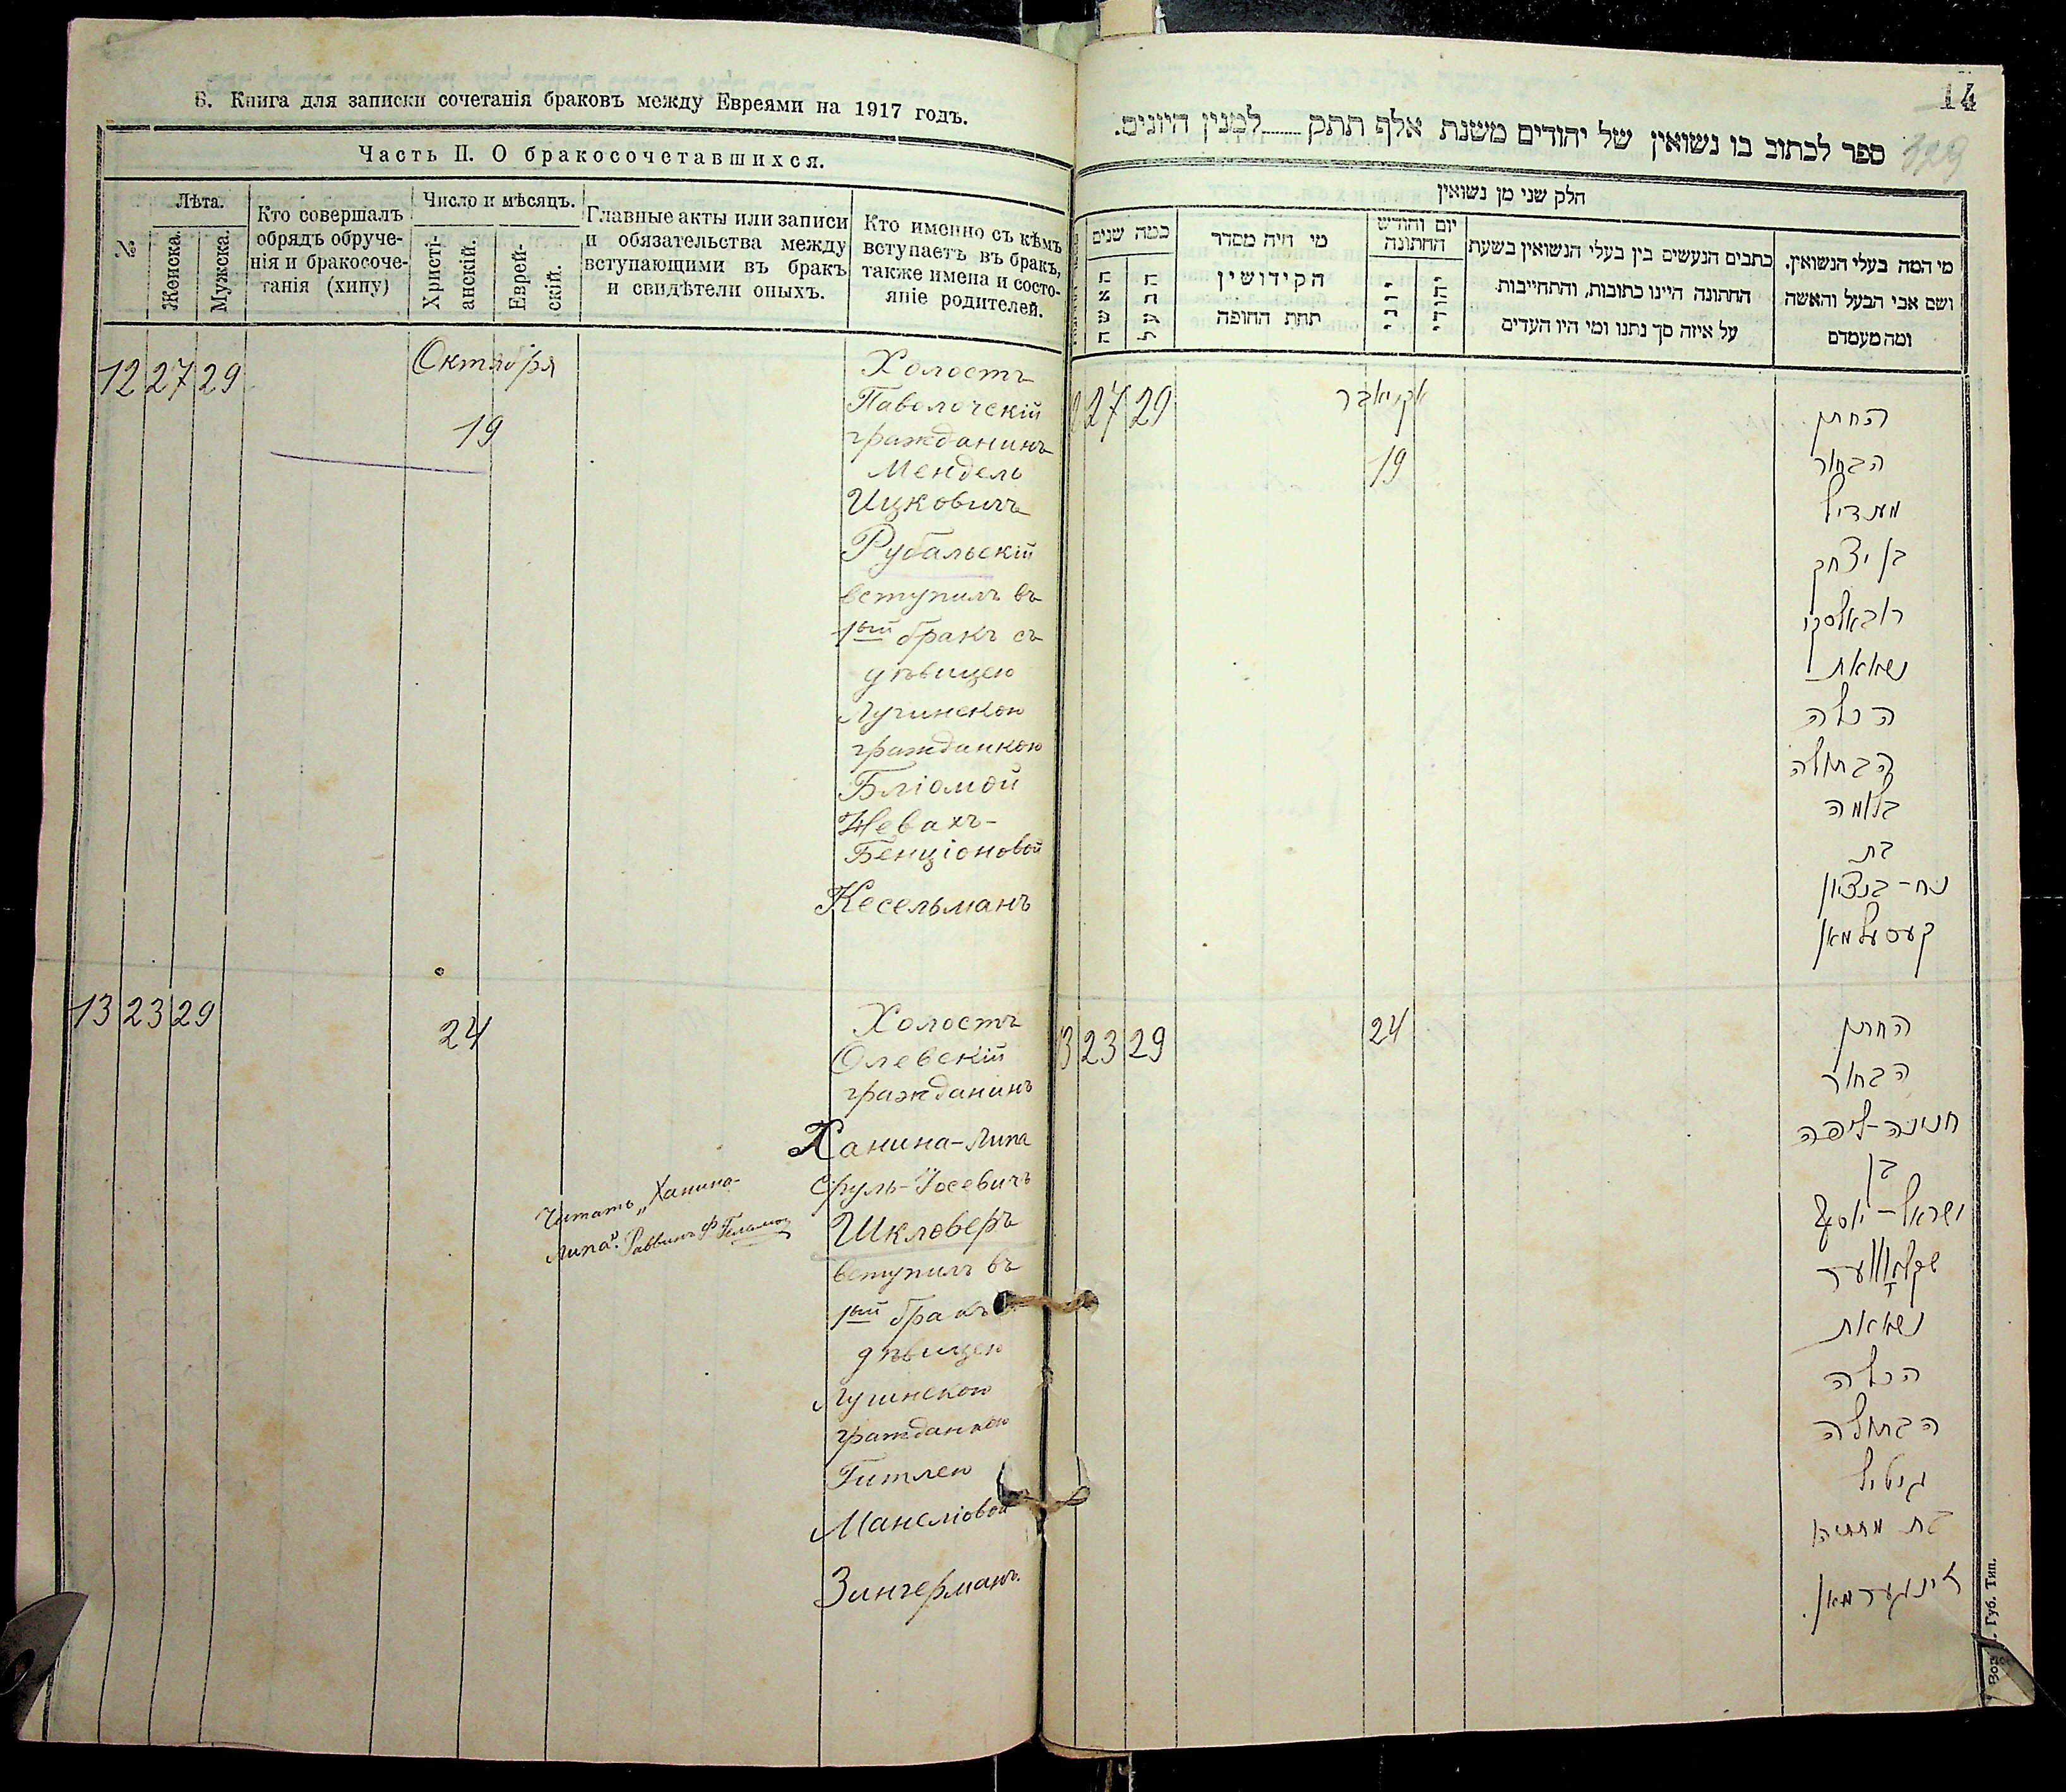 Б. Книга для записки сочетанія браковъ между Евреями на 1917 годъ.
Часть II. О бракосочетавшихся.
№
Лѣта.
Женска.
Мужска.
Кто совершалъ
обрядъ обруче-
нія и бракосоче-
танія (хипу)
Число и мѣсяцъ.
Христі-
анскій.
Еврей-
скій.
Главные акты или записи
и обязательства между
вступающими въ бракъ
и свидѣтели оныхъ.
Кто именно съ кѣмъ
вступаетъ въ бракъ,
также имена и состо-
яніе родителей.
12 27 29
Октября
19
Холостъ
Паволочскій
гражданинъ
Мендель
Ицковичъ
Рубальскій
вступилъ въ
1ый бракъ съ
дѣвицею
Лугинскою
гражданкою
Блюмой
Невахъ-
Бенціоновой
Кесельманъ
13 23 29
24
Холостъ
Олевскій
гражданинъ
Ханина-Липа
Сруль-Іосевичъ
Шкловеръ
вступилъ въ
1ый бракъ
дѣвицею
Лугинскою
гражданкою
Гитлею
Зингерманъ.
Читать „Ханина-
Липа". Раввинъ
14
329
ספר לכתוב בו נשואין של יהודים משנת אלף תתק ........ למנין היונים.
חלק שני מן נשואין
כמה שנים
האשה
הבעל
מי היה מסדר
הקידושין
תחת החופה
יום וחודש
החתונה
יוני
יהודי
כתבים הנעשים בין בעלי הנשואין בשעת
החתונה היינו כתובות, והתחייבות
על איזה סך נתנו ומי היו העדים
מי המה בעלי הנשואין.
ושם אבי הבעל והאשה
ומה מעמדם
27 29
אקטיאבר
19
החתן
הבחור
מענדיל
בן יצחק
רובאלסקי
נשאת
הכלה
הבתולה
בלומה
בת
נח-בנציון
קעסעלמאן
13 23 29
24
החתן
הבחור
חנינה-ליפה
בן
ישראל-יוסף
שקלאווער
נשאת
הכלה
הבתולה
גיטיל
בת
זינגערמאן.
Губ. Тип.